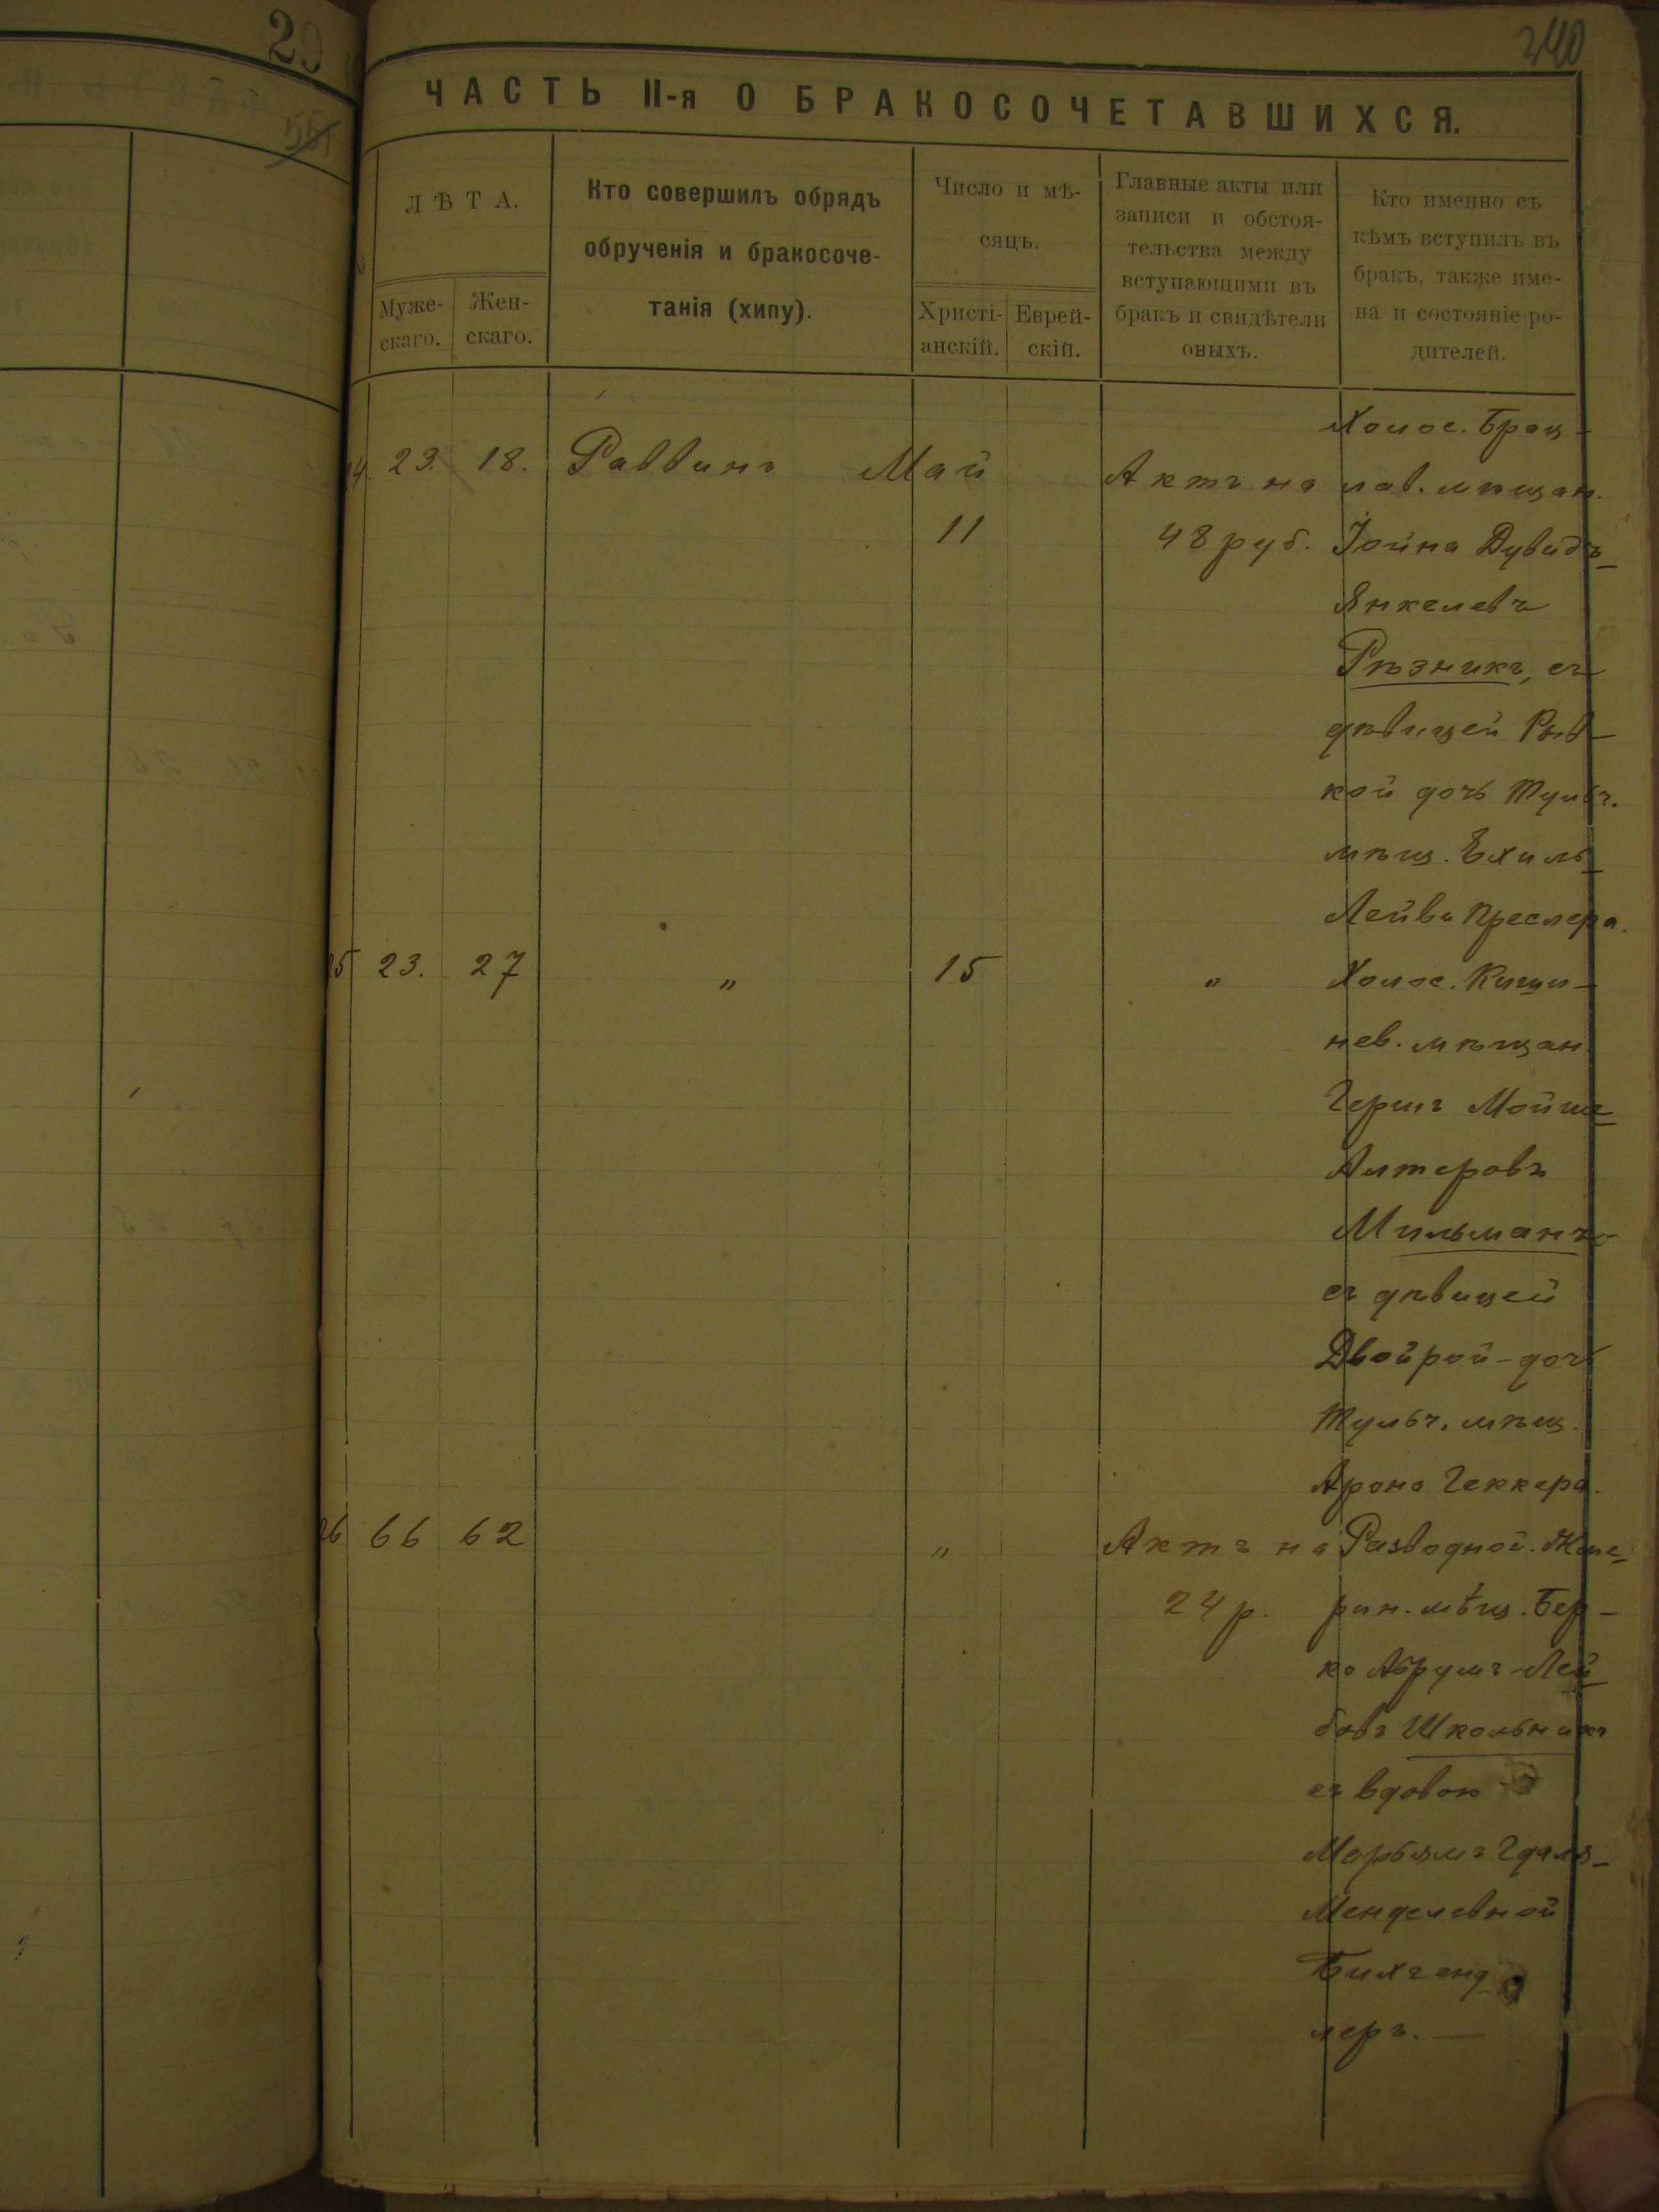 29
561
240
ЧАСТЬ II-я О БРАКОСОЧЕТАВШИХСЯ.
ЛѢТА.
Муже-
скаго.
Жен-
скаго.
Кто совершилъ обрядъ
обрученія и бракосоче-
танія (хипу).
Число и мѣ-
сяцъ.
Христі-
анскій.
Еврей-
скій.
Главные акты или
записи и обстоя-
тельства между
вступающими въ
бракъ и свидѣтели
оныхъ.
Кто именно съ
кѣмъ вступилъ въ
бракъ, также име-
на и состояніе ро-
дителей.
Холос. Брац-
23. 18. Раввинъ Май Актъ на лав. мѣщан.
11 48 руб. Іойна Дувидъ-
Янкелевъ
Рѣзникъ, съ
дѣвицей Рыв-
кой дочь Тульч.
мѣщ. Ехиль-
Лейви Преслера.
25 23. 27 " 15 " Холос. Киши-
нев. мѣщан.
Гершъ Мойше
Алтеровъ
Мильманъ-
съ дѣвицей
Двойрой-дочь
Тульч. мѣщ.
Арона Геккера.
26 66 62 " Актъ на Разводной. Жме-
24 р. рин. мѣщ. Бер-
ко Абрумъ-Лей-
бовъ Школьникъ
съ вдовою
Марьямъ Гдаля-
Менделевной
Бихгенд-
леръ.